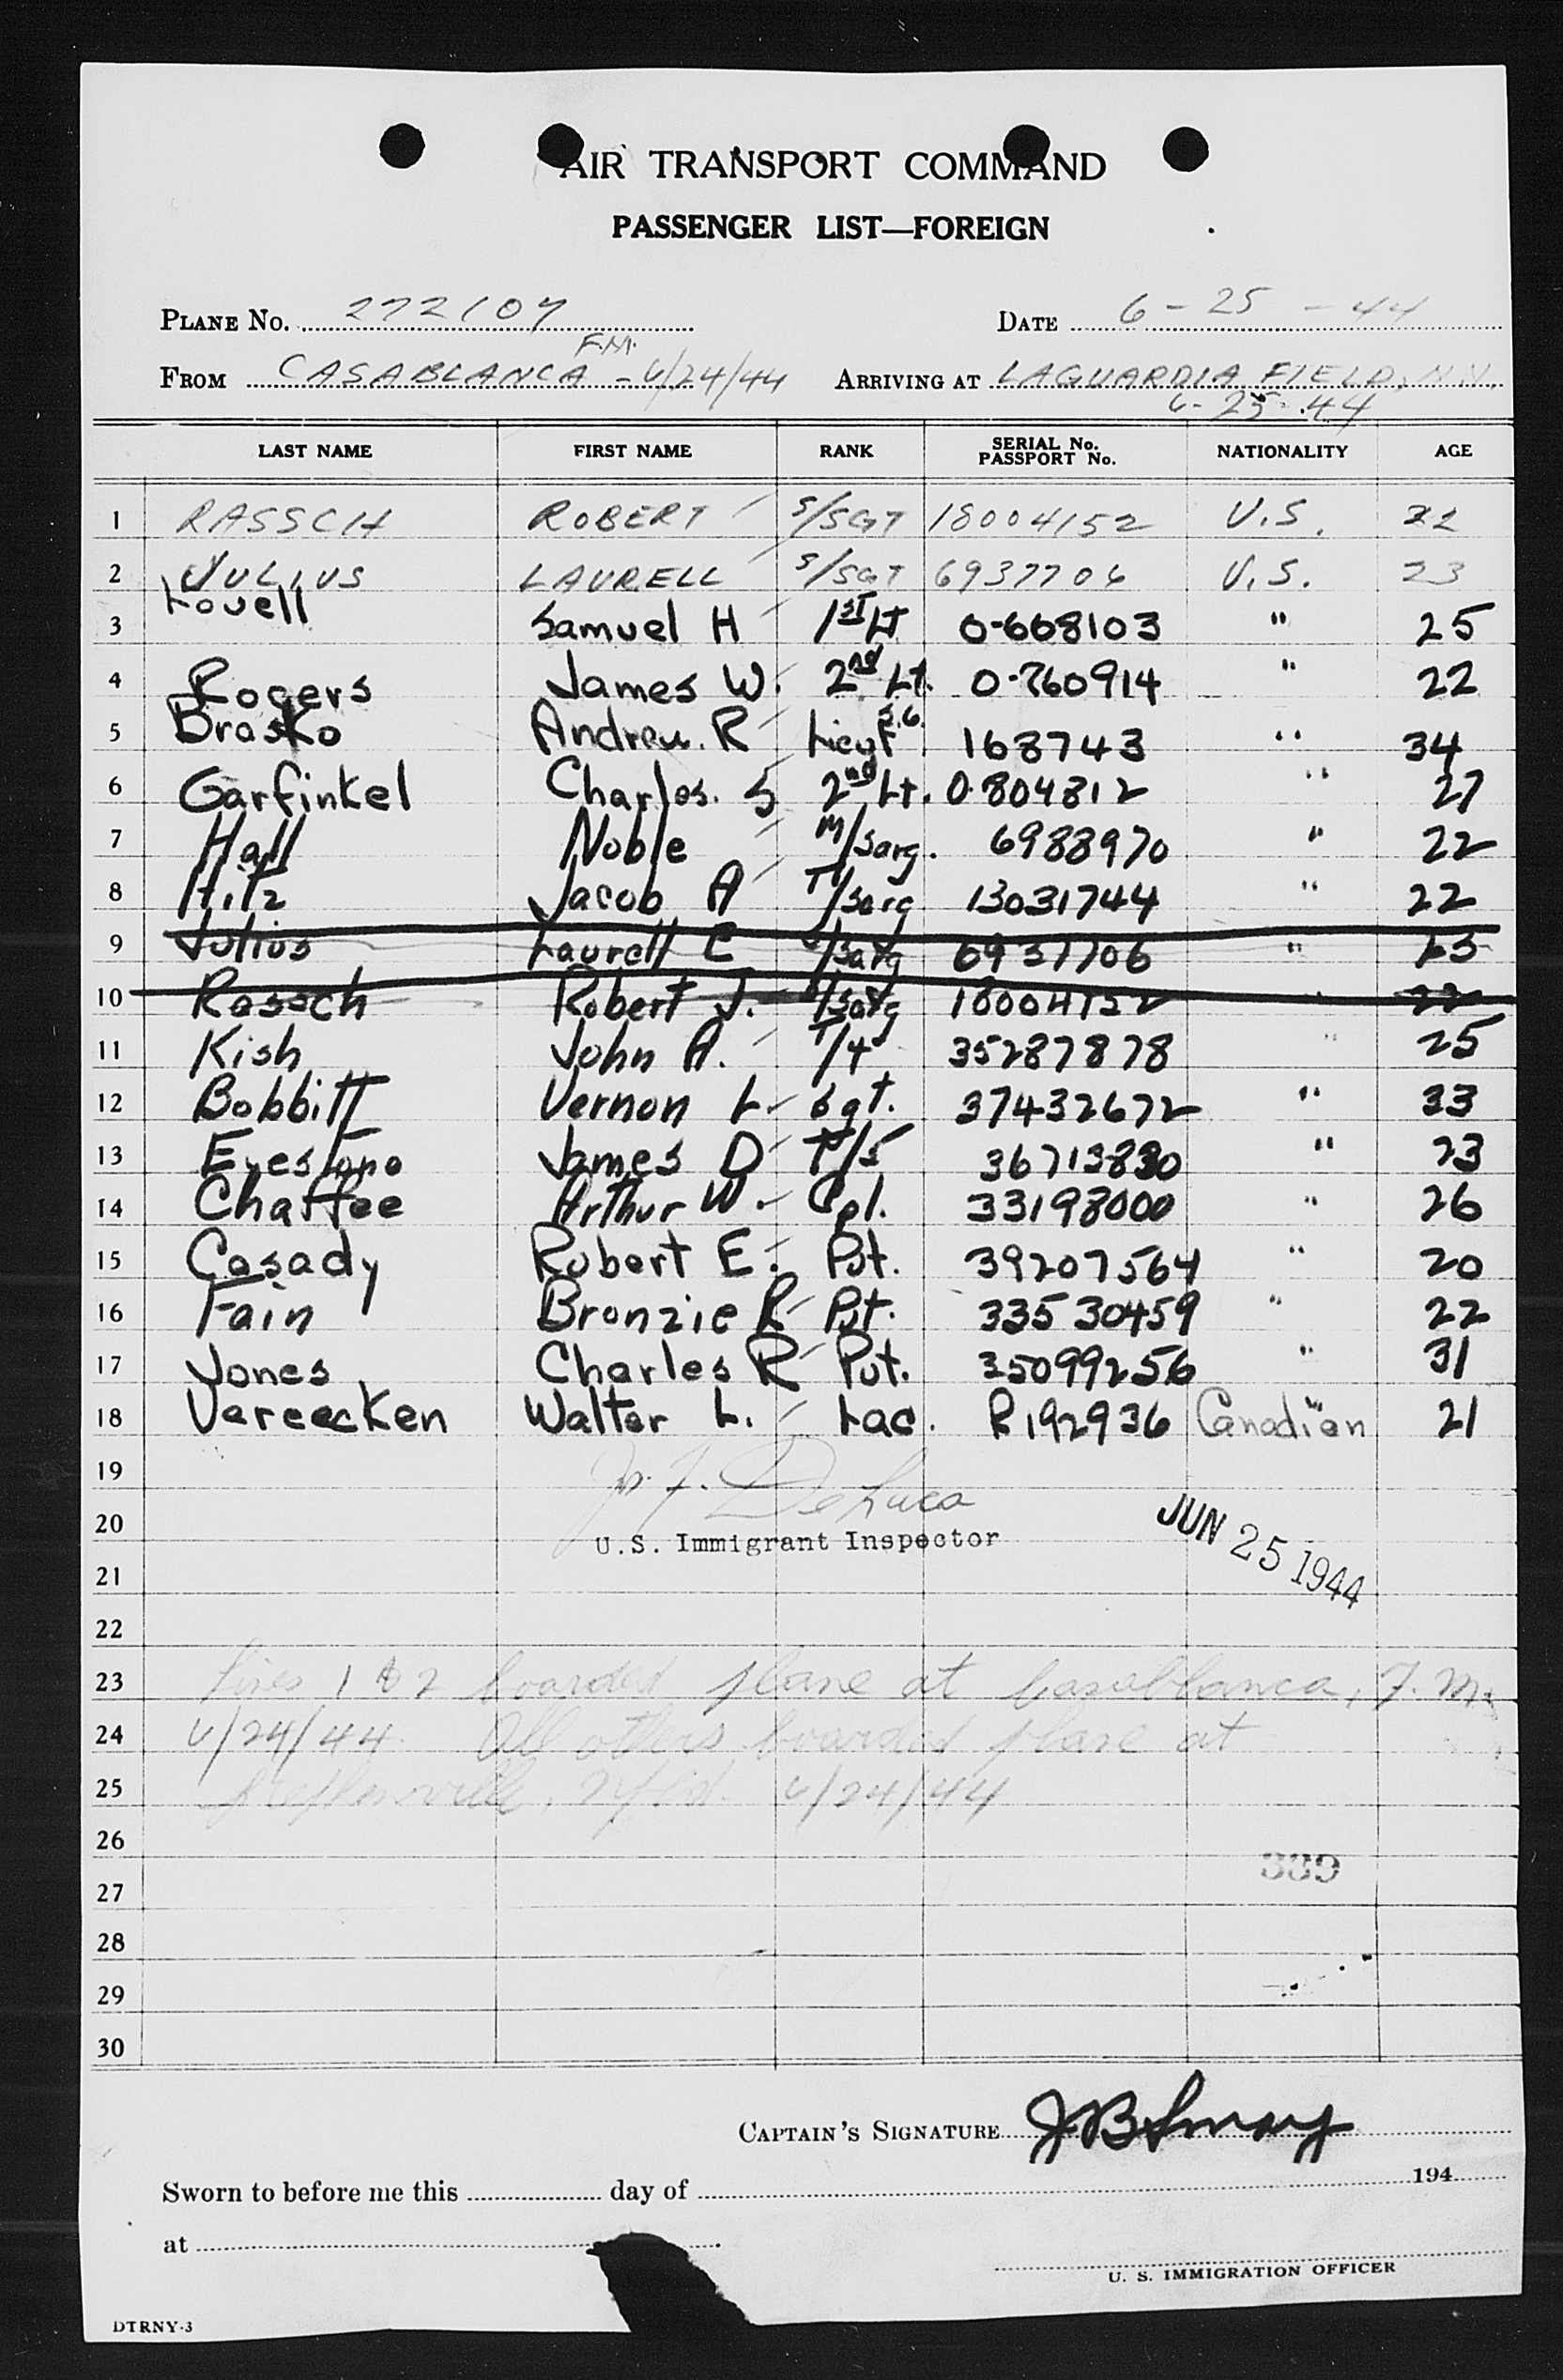 AIR TRANSPORT COMMAND
PASSENGER LIST—FOREIGN
PLANE No. 272107 DATE 6-25-44
F.M.
FROM CASABLANCA - 6/24/44 ARRIVING AT LAGUARDIA FIELD,
6-25-44
LAST NAME FIRST NAME RANK SERIAL No. PASSPORT No. NATIONALITY AGE
1 RASSCH ROBERT S/SGT 18004152 U.S. 22
2 JULIUS LAURELL S/SGT 6937706 U.S. 23
3 Lovell Samuel H 1st Lt 0-668103 " 25
4 Rogers James W. 2nd Lt. 0-760914 " 22
5 Brasko Andrew. R Lieut S.G. 168743 " 34
6 Garfinkel Charles. S 2nd Lt. 0-804812 " 27
7 Hall Noble M/Sarg. 6988970 " 22
8 Hitz Jacob A T/Sarg 13031744 " 22
9 Julius Laurell C S/Sarg 6937706 " 23
10 Rassch Robert J. S/Sarg 18004152 " 22
11 Kish John A. T/4 35287878 " 25
12 Bobbitt Vernon L. Sgt. 37432672 " 33
13 Eyestone James D T/5 36713830 " 23
14 Chaffee Arthur W. Cpl. 33198000 " 26
15 Casady Robert E. Pvt. 39207564 " 20
16 Fain Bronzie R Pvt. 33530459 " 22
17 Jones Charles R Pvt. 35099256 " 31
18 Vereecken Walter L. Lac. R192936 Canadian 21
19 DeLuca
20 U.S. Immigrant Inspector JUN 25 1944
21
22
23 Lines 1 & 2 boarded plane at Casablanca, F.M.
24 6/24/44. All others boarded plane at
25 Stephenville, Nfld. 6/24/44
26
339
27
28
29
30
CAPTAIN'S SIGNATURE
Sworn to before me this day of 194
at
U. S. IMMIGRATION OFFICER
DTRNY-3